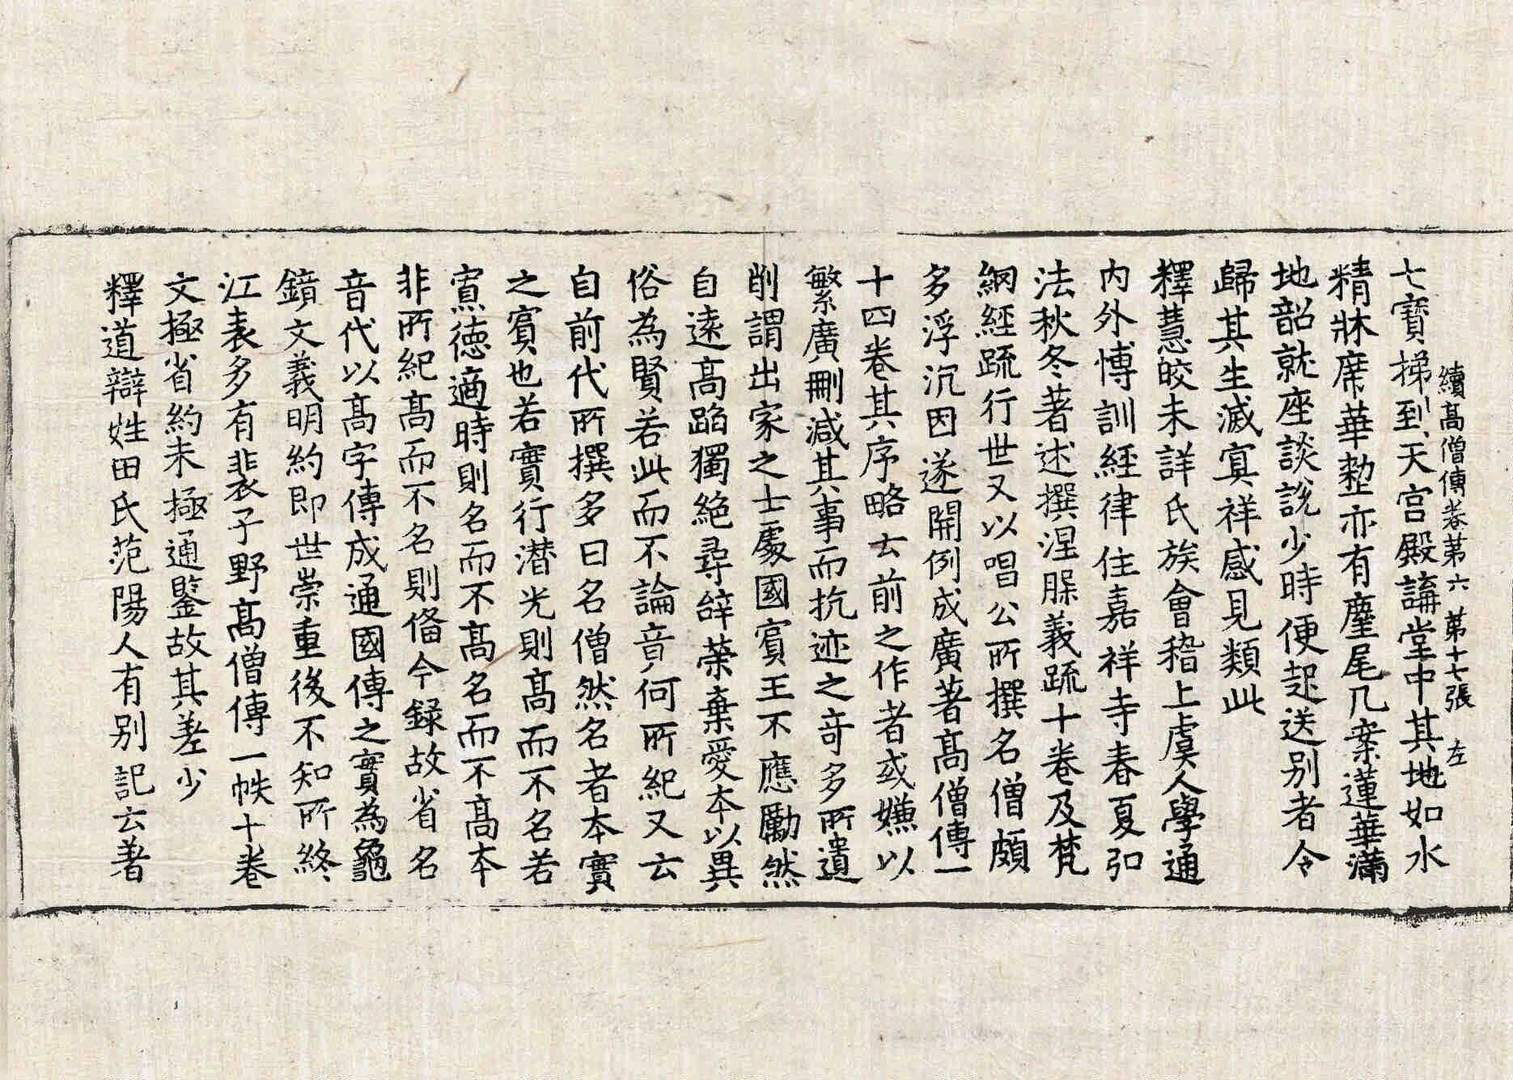 續高僧傳卷第六 第十七張 左
七寶梯到天宮殿講堂中其地如水
精牀席華整亦有麈尾几案蓮華滿
地韶就座談說少時便起送別者令
歸其生滅冥祥感見類此
釋慧皎未詳氏族會稽上虞人學通
內外博訓經律住嘉祥寺春夏弘
法秋冬著述撰涅槃義疏十卷及梵
網經疏行世又以唱公所撰名僧頗
多浮沉因遂開例成廣著髙僧傳一
十四卷其序略云前之作者或嫌以
繁廣刪減其事而抗迹之奇多所遺
削謂出家之士處國賓王不應勵然
自遠髙蹈獨絕尋辭榮棄愛本以異
俗為賢若此而不論音何所紀又云
自前代所撰多曰名僧然名者本實
之賓也若實行潜光則髙而不名若
寡德適時則名而不髙名而不髙本
非所紀髙而不名則俻今録故省名
音代以髙字傳成通國傳之實為龜
鏡文義明約即世崇重後不知所終
江表多有裴子野髙僧傳一帙十卷
文極省約未極通鑒故其差少
釋道辯姓田氏范陽人有別記云著